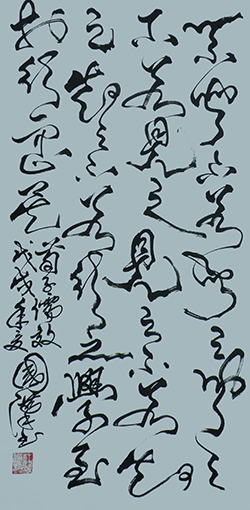 不聞不若聞之聞之
不若見之見之不若知
之知之不若行之學至
於行之而止矣
荀子儒效
戊戌年夏
國書